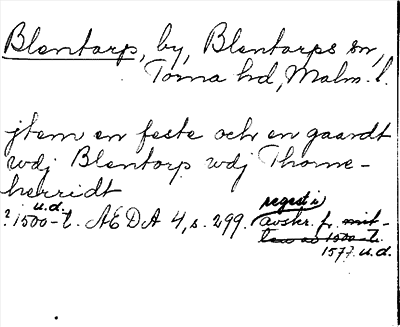 Blentarp, by, Blentarps sn,
Torna hd, Malm. l.
jtem en feste och en gaardt
wdj Blentarp wdj Thorne-
herridt
u.d. regest i
? 1500-t. AEDA 4, s. 299. avskr. fr. mit-
ten av 1500-t.
1577. u.d.